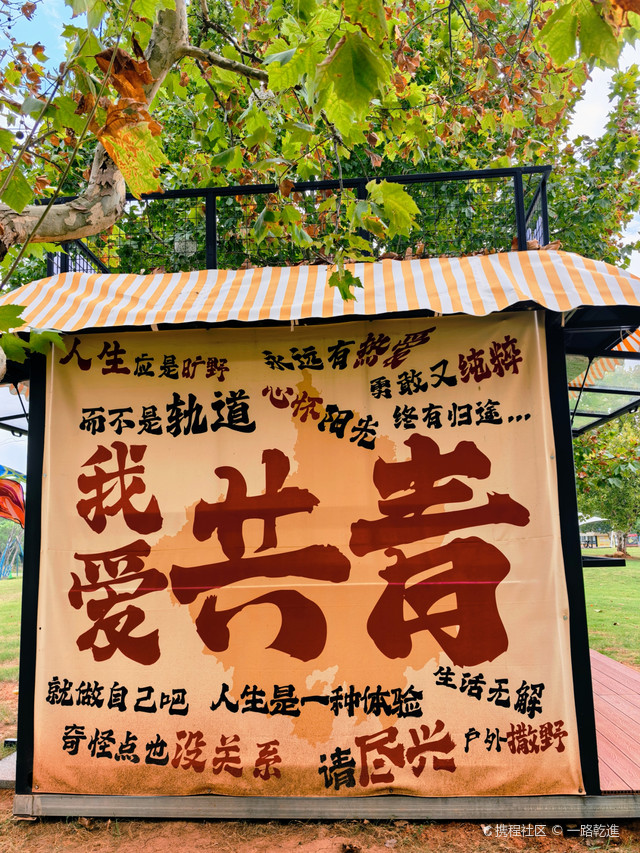 人生应是旷野
而不是轨道
永远有热爱
心怀阳光
勇敢又纯粹
终有归途...
我爱
共青
就做自己吧
人生是一种体验
生活无解
奇怪点也没关系
请尽兴
户外撒野
携程社区 © 一路乾進